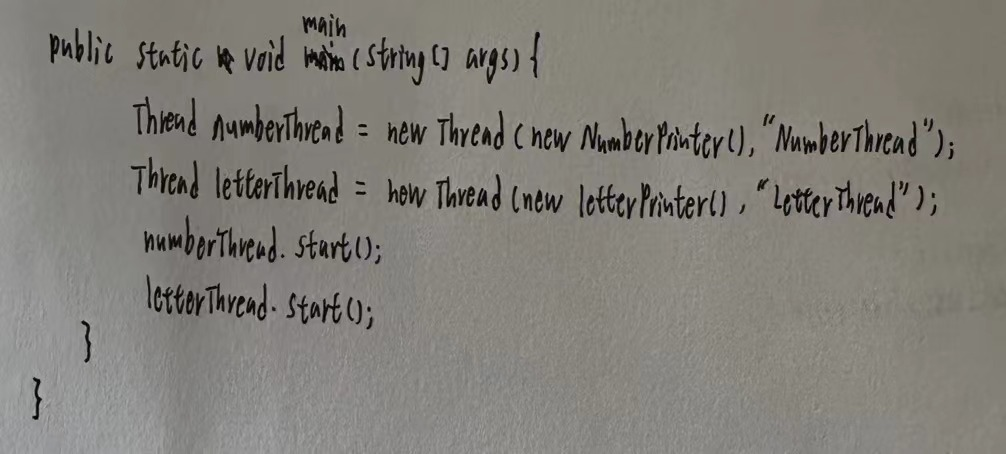 public static void main (String[] args) {
Thread numberThread = new Thread (new NumberPrinter(), "NumberThread");
Thread letterThread = new Thread (new letterPrinter(), "LetterThread");
numberThread. start();
letterThread. start();
}
}